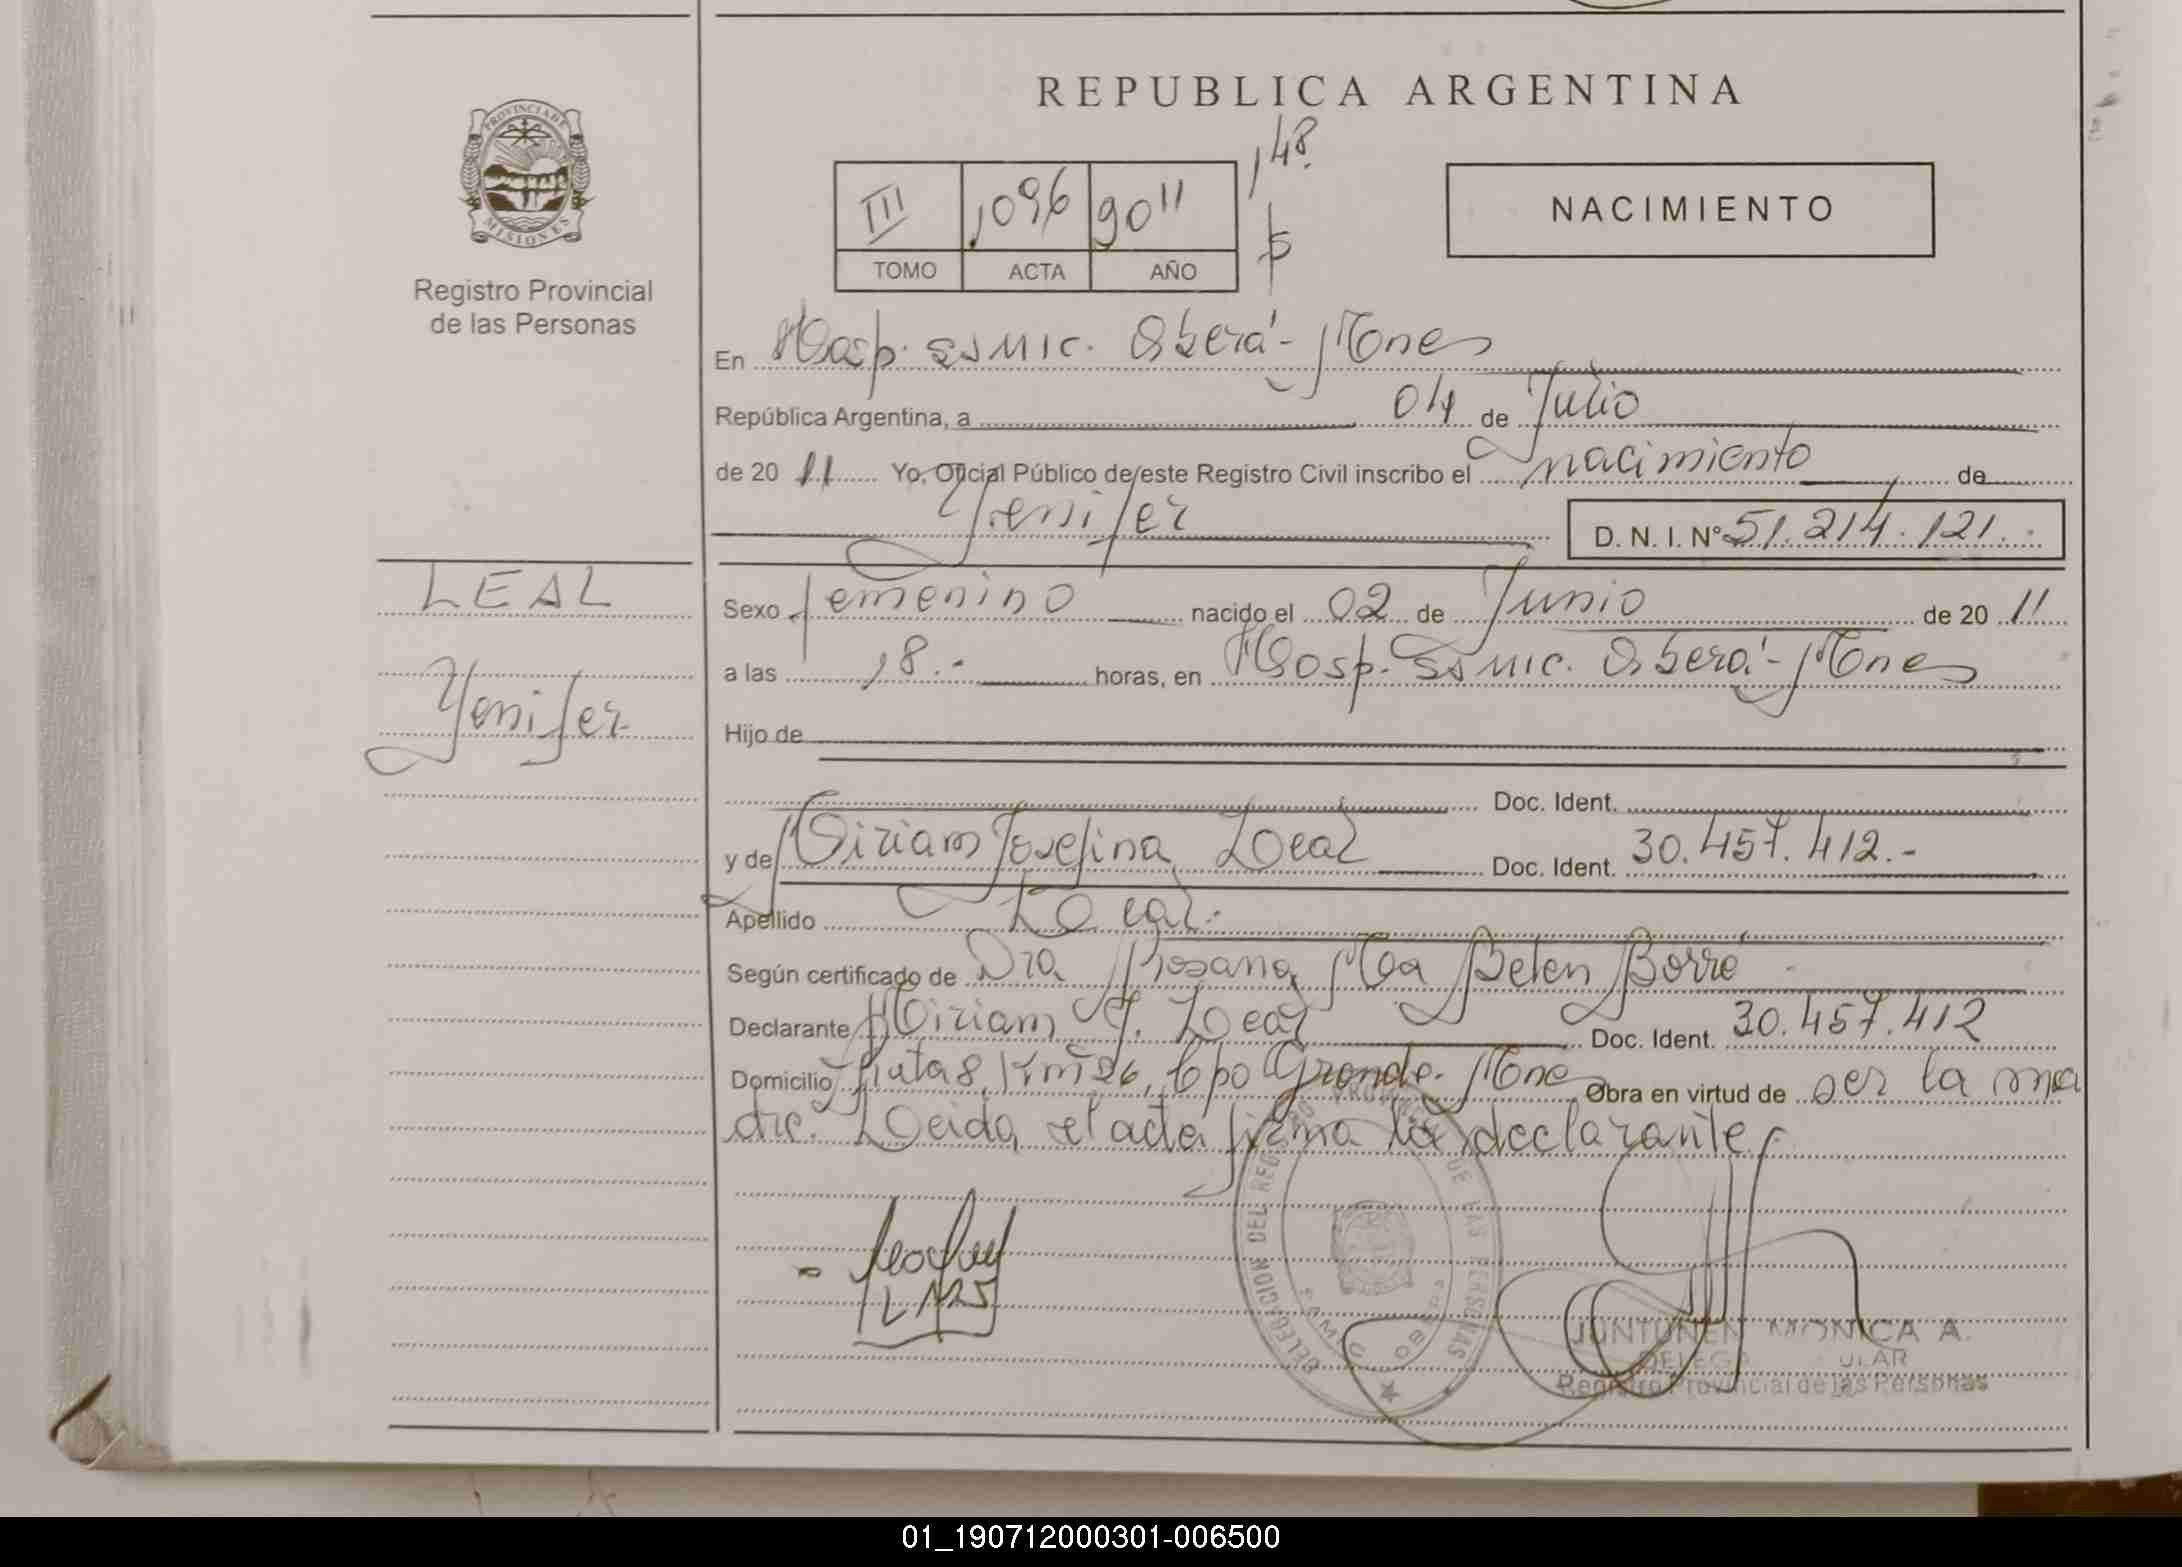 REPUBLICA ARGENTINA
PROVINCIA DE
MISIONES
Registro Provincial
de las Personas
III 1096 2011
148
TOMO ACTA AÑO
NACIMIENTO
En Hosp. SSMIC. Oberá - Mnes
República Argentina, a 04 de Julio
de 20 11 Yo, Oficial Público de este Registro Civil inscribo el nacimiento de
Yenifer D. N. I. N° 51.214.121.-
LEAL
Yenifer
Sexo femenino nacido el 02 de Junio de 20 11
a las 18.- horas, en Hosp. SSMIC. Oberá - Mnes
Hijo de
Doc. Ident.
y de Miriam Josefina Leal Doc. Ident. 30.457.412.-
Apellido Leal.
Según certificado de Dra Rosana Ma Belen Borré
Declarante Miriam J. Leal Doc. Ident. 30.457.412
Domicilio Ruta 8, Km 26, Cpo Grande - Mnes Obra en virtud de ser la ma
dre. Leida el acta firma la declarante
DELEGACION DEL REGISTRO PROVINCIAL DE LAS PERSONAS
OBERA
JUNTUNEN MONICA A.
Registro Provincial de las Personas
01_190712000301-006500